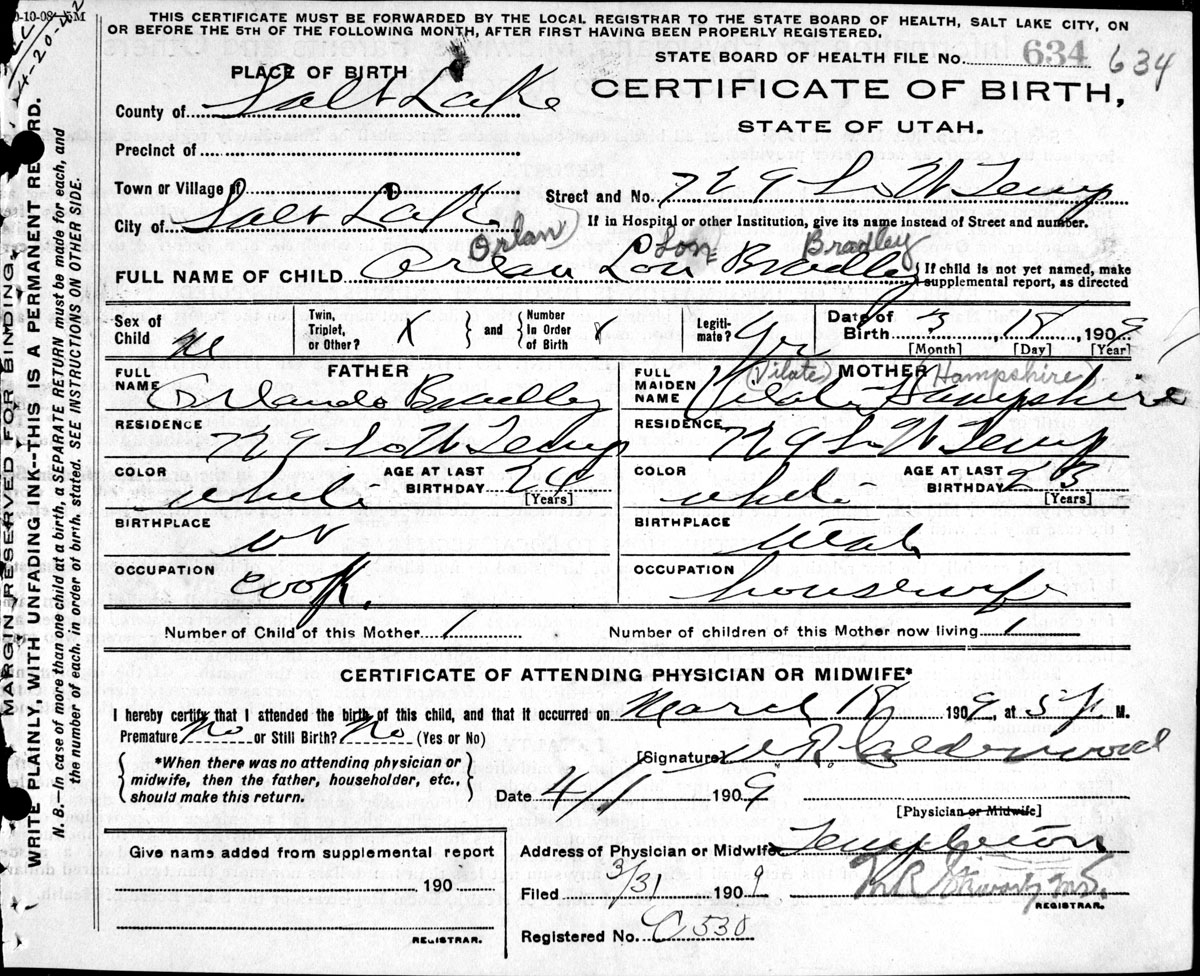 THIS CERTIFICATE MUST BE FORWARDED BY THE LOCAL REGISTRAR TO THE STATE BOARD OF HEALTH, SALT LAKE CITY, ON
OR BEFORE THE 5TH OF THE FOLLOWING MONTH, AFTER FIRST HAVING BEEN PROPERLY REGISTERED.
STATE BOARD OF HEALTH FILE No. 634 634
PLACE OF BIRTH
CERTIFICATE OF BIRTH,
STATE OF UTAH.
County of Salt Lake
Precinct of
Town or Village of
Street and No. 729 So W Temp
City of Salt Lake
If in Hospital or other Institution, give its name instead of Street and number.
Orlan Lon Bradley
FULL NAME OF CHILD Orlan Lon Bradley
If child is not yet named, make supplemental report, as directed
Sex of Child M
Twin, Triplet, or Other? X
and
Number In Order of Birth
Legitimate? yes
Date of Birth 3, 18, 1909
[Month] [Day] [Year]
FATHER
FULL NAME Orlando Bradley
RESIDENCE 729 So W Temp
COLOR white
AGE AT LAST BIRTHDAY 24 [Years]
BIRTHPLACE
OCCUPATION cook.
MOTHER
(Vilate) (Hampshire)
FULL MAIDEN NAME Vilate Hampshire
RESIDENCE 729 So W Temp
COLOR white
AGE AT LAST BIRTHDAY 23 [Years]
BIRTHPLACE Utah
OCCUPATION housewife
Number of Child of this Mother 1
Number of children of this Mother now living 1
CERTIFICATE OF ATTENDING PHYSICIAN OR MIDWIFE*
I hereby certify that I attended the birth of this child, and that it occurred on March 18, 1909, at 5 P. M.
Premature? No or Still Birth? No (Yes or No)
[Signature] R. Calderwood
*When there was no attending physician or
midwife, then the father, householder, etc.,
should make this return.
Date 4/1 1909
[Physician or Midwife]
Give name added from supplemental report
190
REGISTRAR.
Address of Physician or Midwife Templeton
Filed 3/31 1909
M R Stewart M.D.
REGISTRAR.
Registered No. C 530
MARGIN RESERVED FOR BINDING
WRITE PLAINLY, WITH UNFADING INK--THIS IS A PERMANENT RECORD.
N. B.--In case of more than one child at a birth, a SEPARATE RETURN must be made for each, and
the number of each, in order of birth, stated. SEE INSTRUCTIONS ON OTHER SIDE.